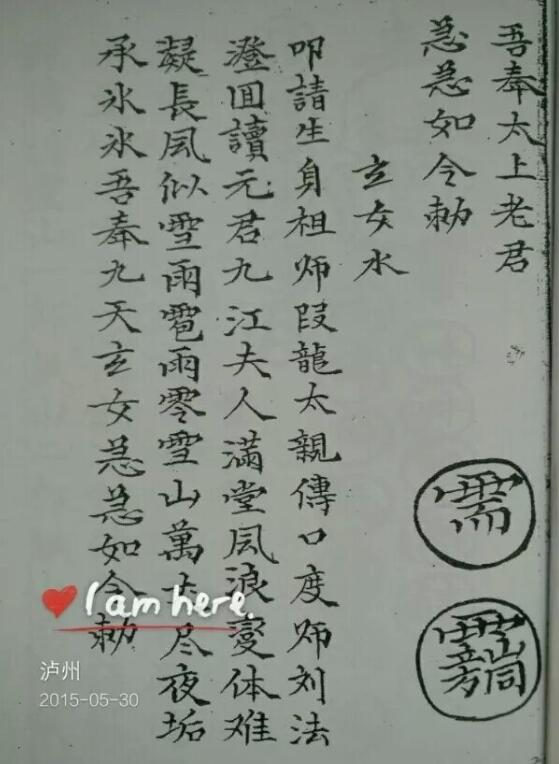 吾奉太上老君
急急如令勅
玄女水
叩請生身祖师段龍太親傳口度师刘法
澄囬讀元君九江夫人滿堂風浪變体难
凝長風似雪雨雹雨零雪山萬丈尽夜垢
承氷氷吾奉九天玄女急急如令勅
I am here.
泸州
2015-05-30